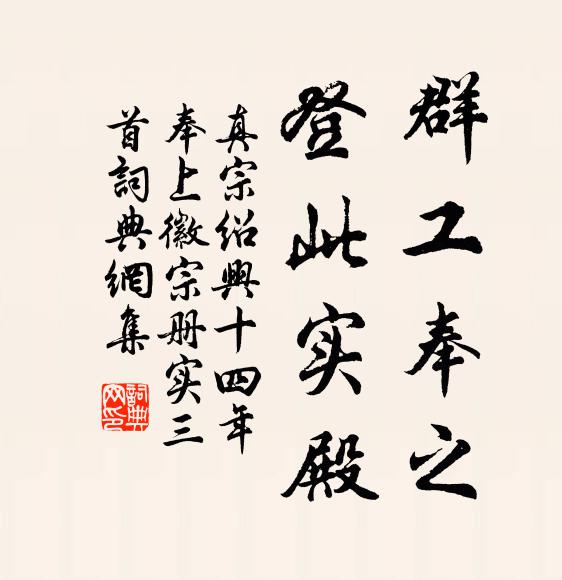 群工奉之
登此实殿
真宗绍興十四年
奉上徽宗册实三
首詞典網集
詞典网印